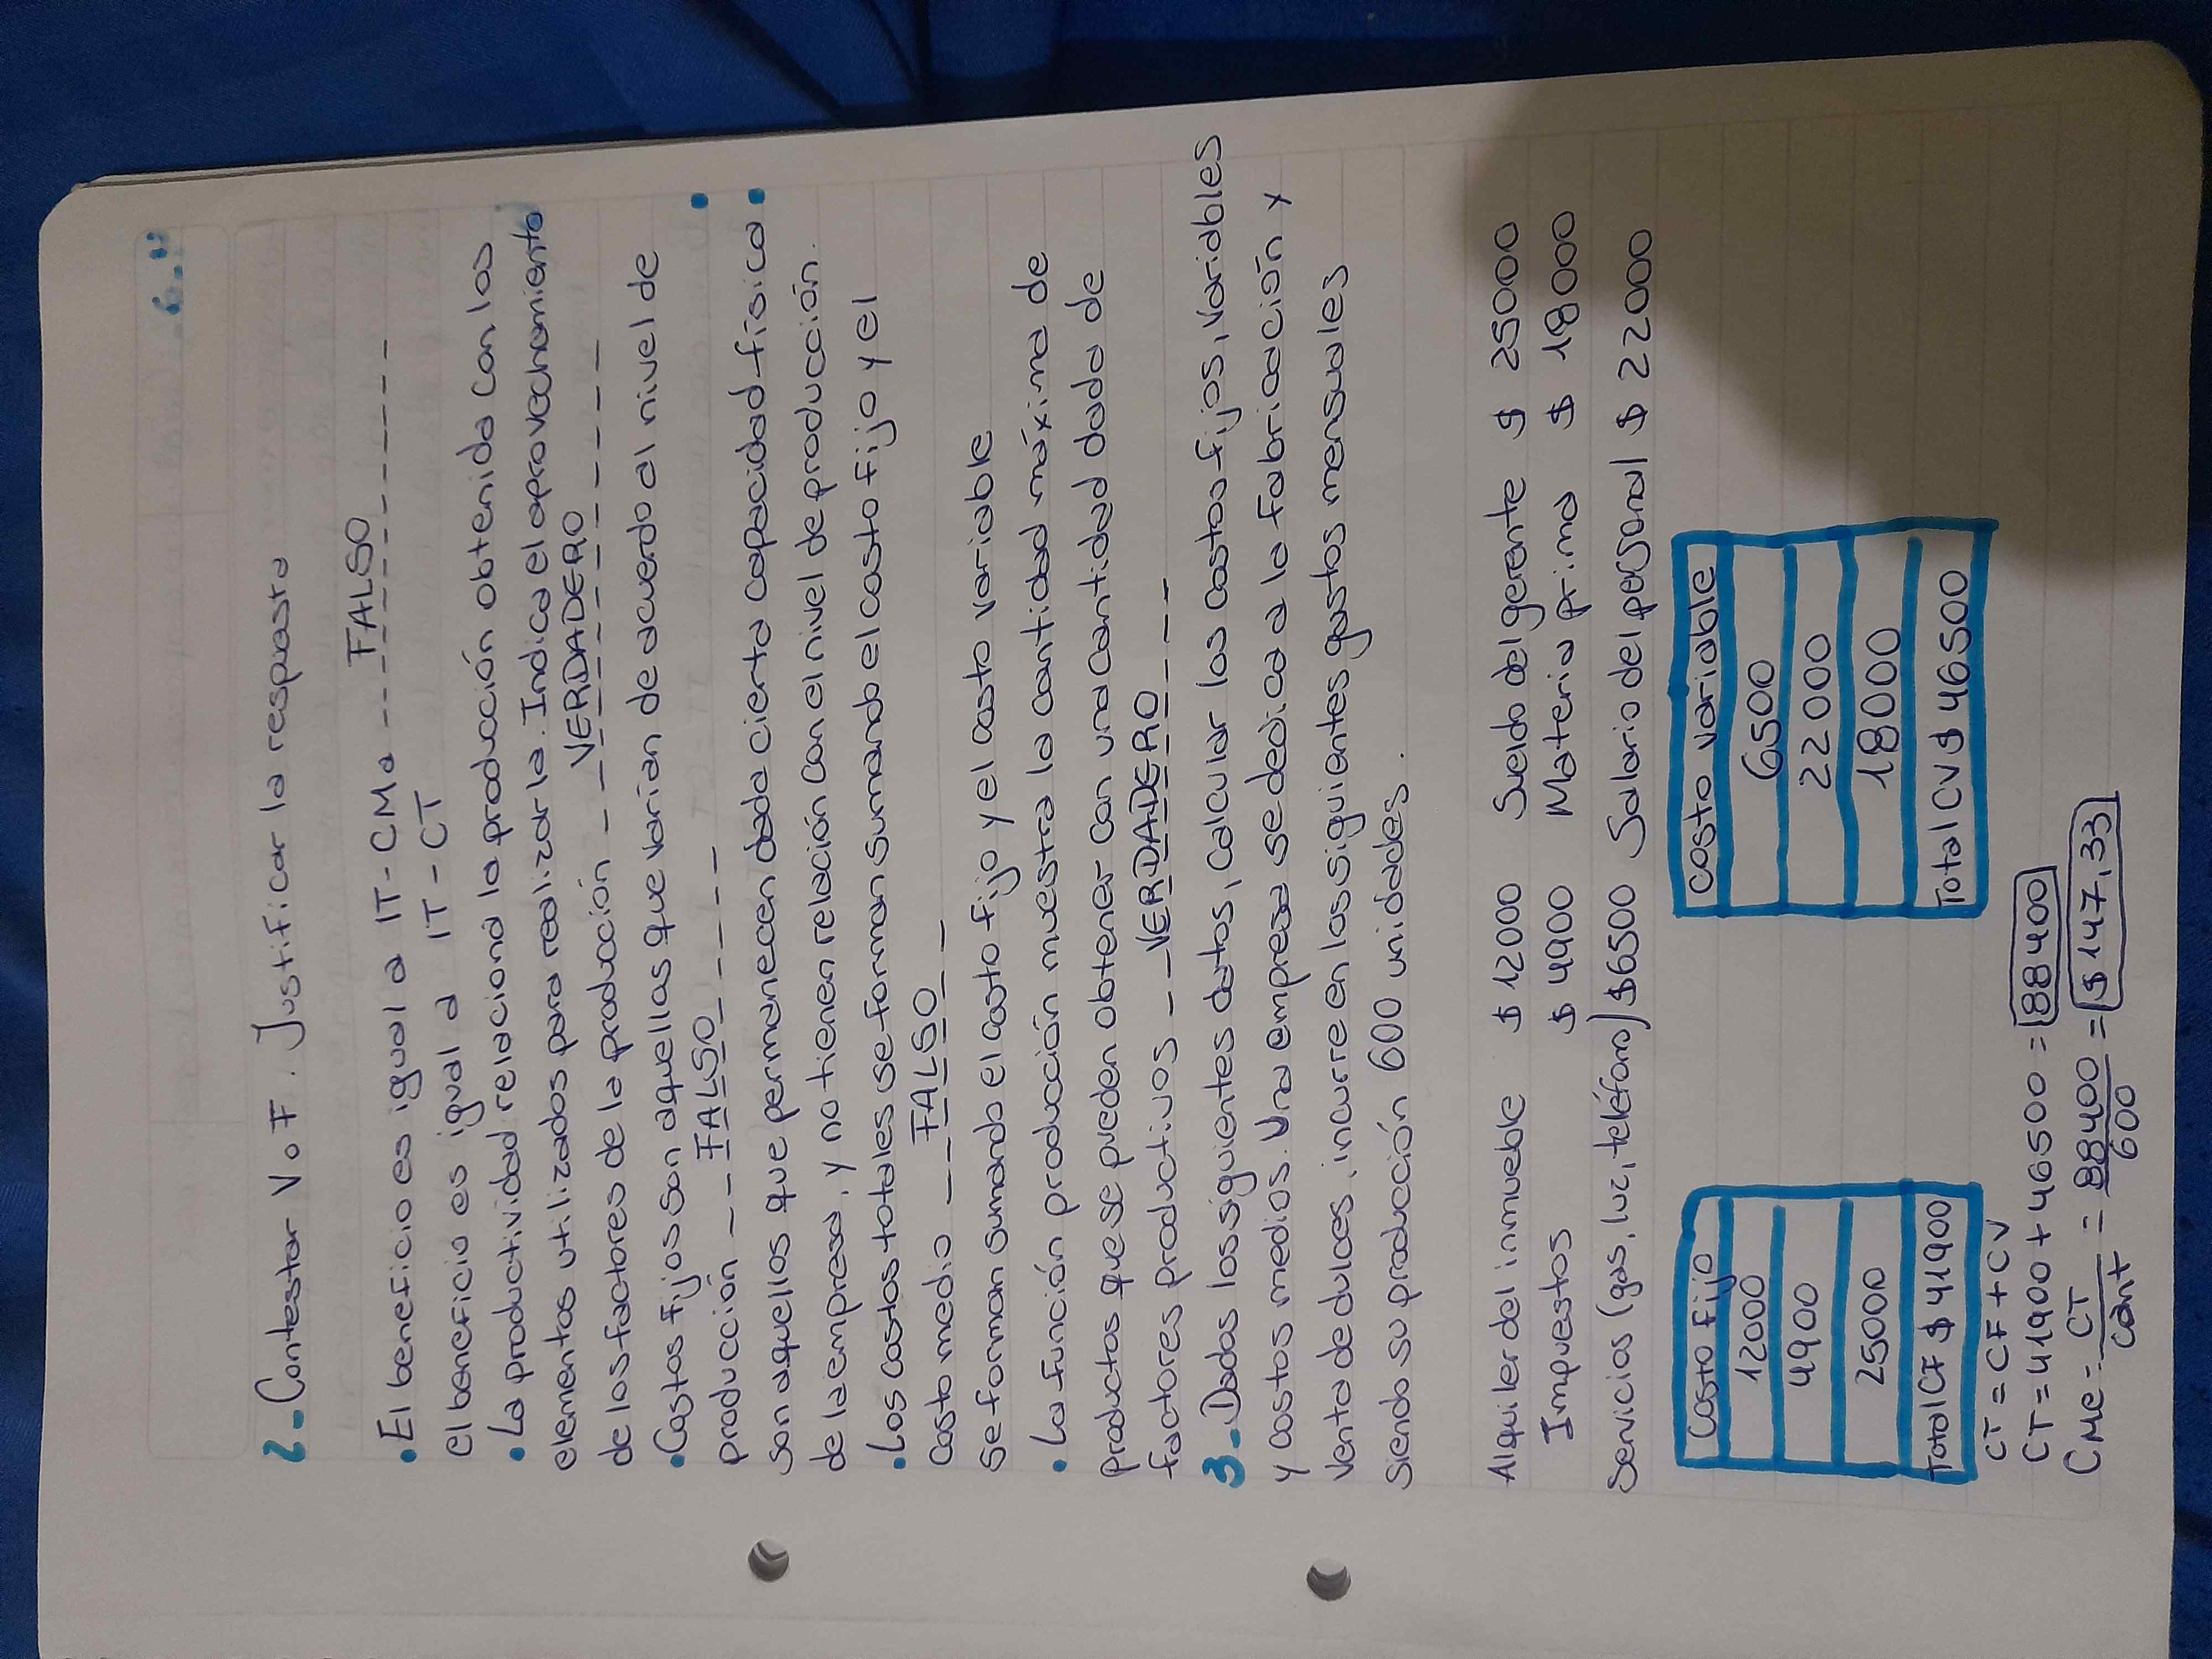 2_Contestar V o F. Justificar la respuesta
• El beneficio es igual a IT-CMa --- FALSO
el beneficio es igual a IT-CT
• La productividad relaciona la producción obtenida con los
elementos utilizados para realizarla. Indica el aprovechamiento
de los factores de la producción __ VERDADERO
• Costos fijos son aquellos que varían de acuerdo al nivel de
producción -- FALSO
son aquellos que permanecen dada cierta capacidad física
de la empresa, y no tienen relación con el nivel de producción.
• Los costos totales se forman sumando el costo fijo y el
costo medio -- FALSO
se forman sumando el costo fijo y el costo variable
• La función producción muestra la cantidad máxima de
productos que se pueden obtener con una cantidad dada de
factores productivos -- VERDADERO
3_Dados los siguientes datos, calcular los costos fijos, variables
y costos medios. Una empresa se dedica a la fabricación x
venta de dulces, incurre en los siguientes gastos mensuales
siendo su producción 600 unidades.
Alquiler del inmueble $ 12000 Sueldo del gerente $ 25000
Impuestos $ 4900 Materia prima $ 18000
Servicios (gas, luz, teléfono) $6500 Salario del personal $ 22000
Costo fijo costo variable
12000 6500
4900 22000
25000 18000
Total CF $ 41900 Total CV $ 46500
CT = CF + CV
CT = 41900 + 46500 = 88400
CMe = CT = 88400 = $ 147,33
cant 600